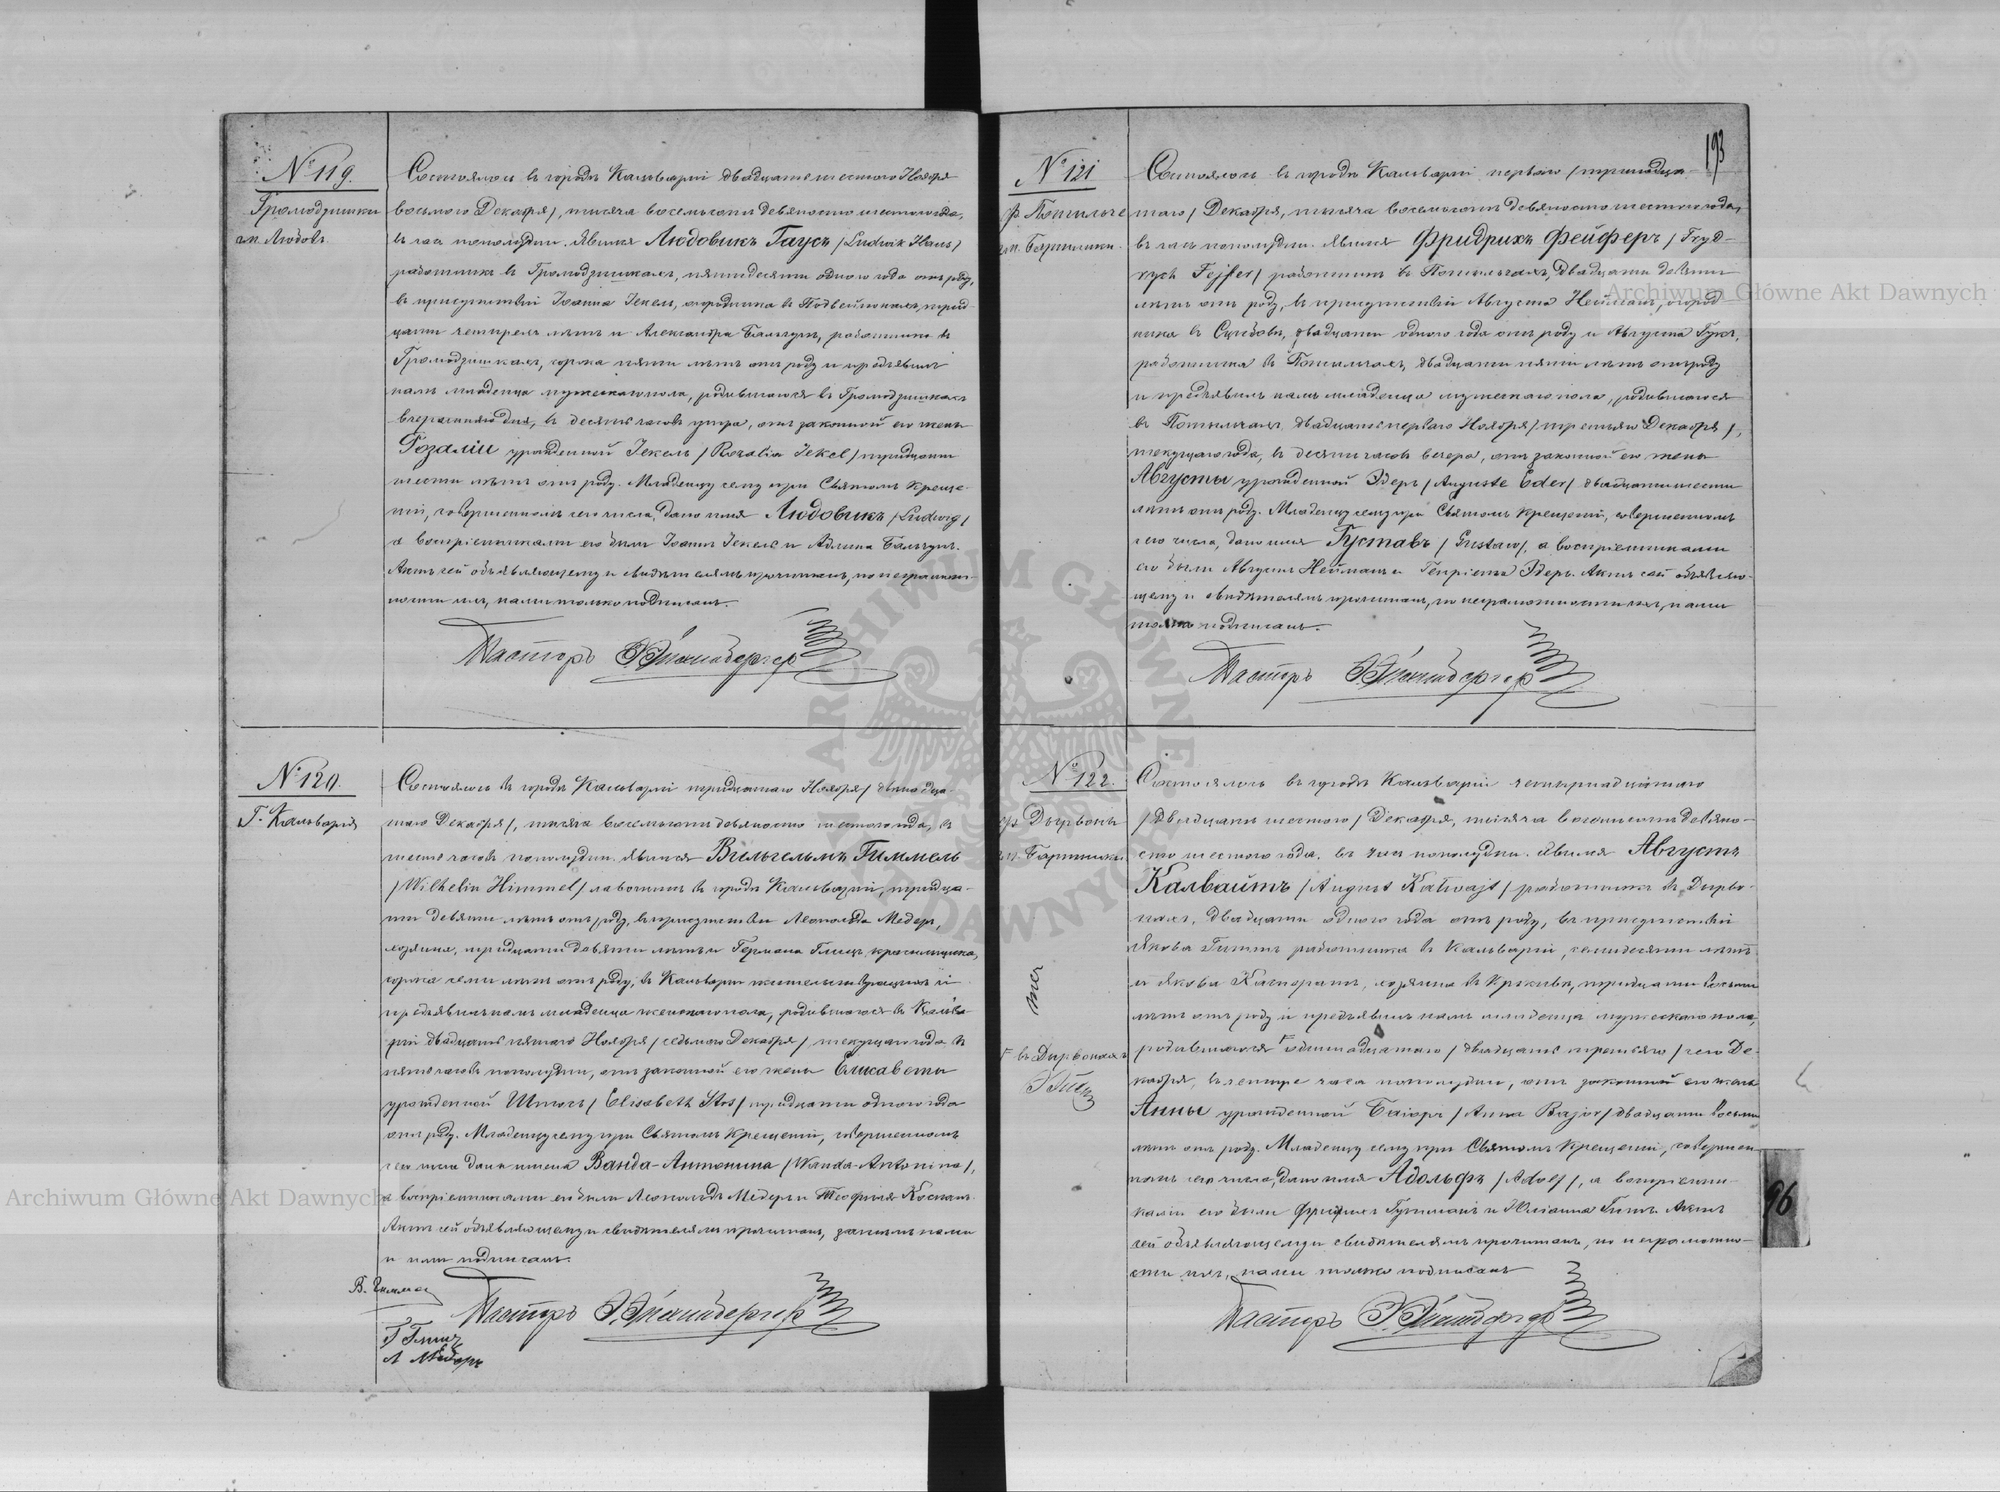 № 119.
Громодзишки
гм. Любовъ
Состоялось въ городѣ Кальваріи двадцать шестого Ноября
восьмого Декабря/, тысяча восемьсотъ девяносто шестого года,
въ часъ пополудни. Явился Людовикъ Гаусъ /Ludwik Haus/
работникъ въ Громодзишкахъ, пятидесяти одного года отъ роду,
въ присутствіи Іоанна Іекель, огородника въ трид-
цати четырехъ лѣтъ и Александра Бальчунъ, работника въ
Громодзишкахъ, сорока пяти лѣтъ отъ роду и предъявилъ
намъ младенца мужескаго пола, родившагося въ Громодзишкахъ
вчерашняго дня, въ десять часовъ утра, отъ законной его жены
Розаліи урожденной Іекель /Rozalia Jekel/ тридцати
шести лѣтъ отъ роду. Младенцу сему при Святомъ Креще-
ніи, совершенномъ сего числа, дано имя Людовикъ /Ludwig/
а воспріемниками его были Іоаннъ Іекель и Адлина Бальчунъ.
Актъ сей объявляющему и свидѣтелямъ прочитанъ, по неграмот-
ности ихъ, нами только подписанъ.
Пасторъ
№ 120.
Г. Кальварія
Состоялось въ городѣ Кальваріи тридцатаго Ноября /двѣнадца-
таго Декабря/, тысяча восемьсотъ девяносто шестого года, въ
шесть часовъ пополудни. Явился Вильгельмъ Гиммель
/Wilhelm Himmel/ лавочникъ въ городѣ Кальваріи, тридца-
ти девяти лѣтъ отъ роду, въ присутствіи Леопольда Медеръ,
хозяина, тридцати девяти лѣтъ и Германа Глицъ, красильщика,
сорока семи лѣтъ отъ роду, въ Кальваріи жительствующихъ и
предъявилъ намъ младенца женскаго пола, родившагося въ Кальва-
ріи двадцать пятаго Ноября /седьмого Декабря/ текущаго года въ
пять часовъ пополудни, отъ законной его жены Елисаветы
урожденной Штосъ /Elisabeth Stos/ тридцати одного года
отъ роду. Младенцу сему при Святомъ Крещеніи, совершенномъ
сего числа даны имена Ванда-Антонина /Wanda-Antonina/,
а воспріемниками его были Леопольдъ Медеръ и Теофиля
Актъ сей объявляющему и свидѣтелямъ прочитанъ, затѣмъ нами
и ими подписанъ.
В. Гиммель
Пасторъ
Г Глицъ
Л Медеръ
193
№ 121
гм.
Состоялось въ городѣ Кальваріи перваго /тринадца-
таго/ Декабря, тысяча восемьсотъ девяносто шестого года,
въ часъ пополудни. Явился Фридрихъ Фейферъ /Fryd-
rych Fejfer/ работникъ въ двадцати девяти
лѣтъ отъ роду, въ присутствіи Августа Нейманъ, огород-
ника въ двадцати одного года отъ роду и Августа
работника въ двадцати пяти лѣтъ отъ роду
и предъявилъ намъ младенца мужескаго пола, родившагося
въ двадцать перваго Ноября /третьяго Декабря/,
текущаго года, въ десять часовъ вечера, отъ законной его жены
Августы урожденной Эдеръ /Auguste Eder/ двадцати шести
лѣтъ отъ роду. Младенцу сему при Святомъ Крещеніи, совершенномъ
сего числа, дано имя Густавъ /Gustaw/, а воспріемниками
его были Августъ Нейманъ и Генріета Эдеръ. Актъ сей объявляю-
щему и свидѣтелямъ прочитанъ, по неграмотности ихъ, нами
только подписанъ.
Пасторъ
№ 122.
Дырвоны
Состоялось въ городѣ Кальваріи четырнадцатаго
/двадцать шестого/ Декабря, тысяча восемьсотъ девяно-
сто шестого года, въ часъ пополудни. Явился Августъ
Калвайтъ /August Kalwajt/ работникъ въ Дырво-
нахъ, двадцати одного года отъ роду, въ присутствіи
Якова работника въ Кальваріи, семидесяти лѣтъ
и Якова хозяина въ тридцати восьми
лѣтъ отъ роду и предъявилъ намъ младенца мужескаго пола,
родившагося одиннадцатаго /двадцать третьяго/ сего Де-
кабря, въ четыре часа пополудни, отъ законной его жены
Анны урожденной Баіоръ /Anna Bajor/ двадцати восьми
лѣтъ отъ роду. Младенцу сему при Святомъ Крещеніи, совершен-
номъ сего числа, дано имя Адольфъ /Adolf/, а воспріемни-
ками его были Гутманъ и Юліанна Актъ
сей объявляющему и свидѣтелямъ прочитанъ, по неграмотно-
сти ихъ, нами только подписанъ
Г въ Дырвонахъ
Пасторъ
96
Archiwum Główne Akt Dawnych
Archiwum Główne Akt Dawnych
ARCHIWUM GŁÓWNE AKT DAWNYCH